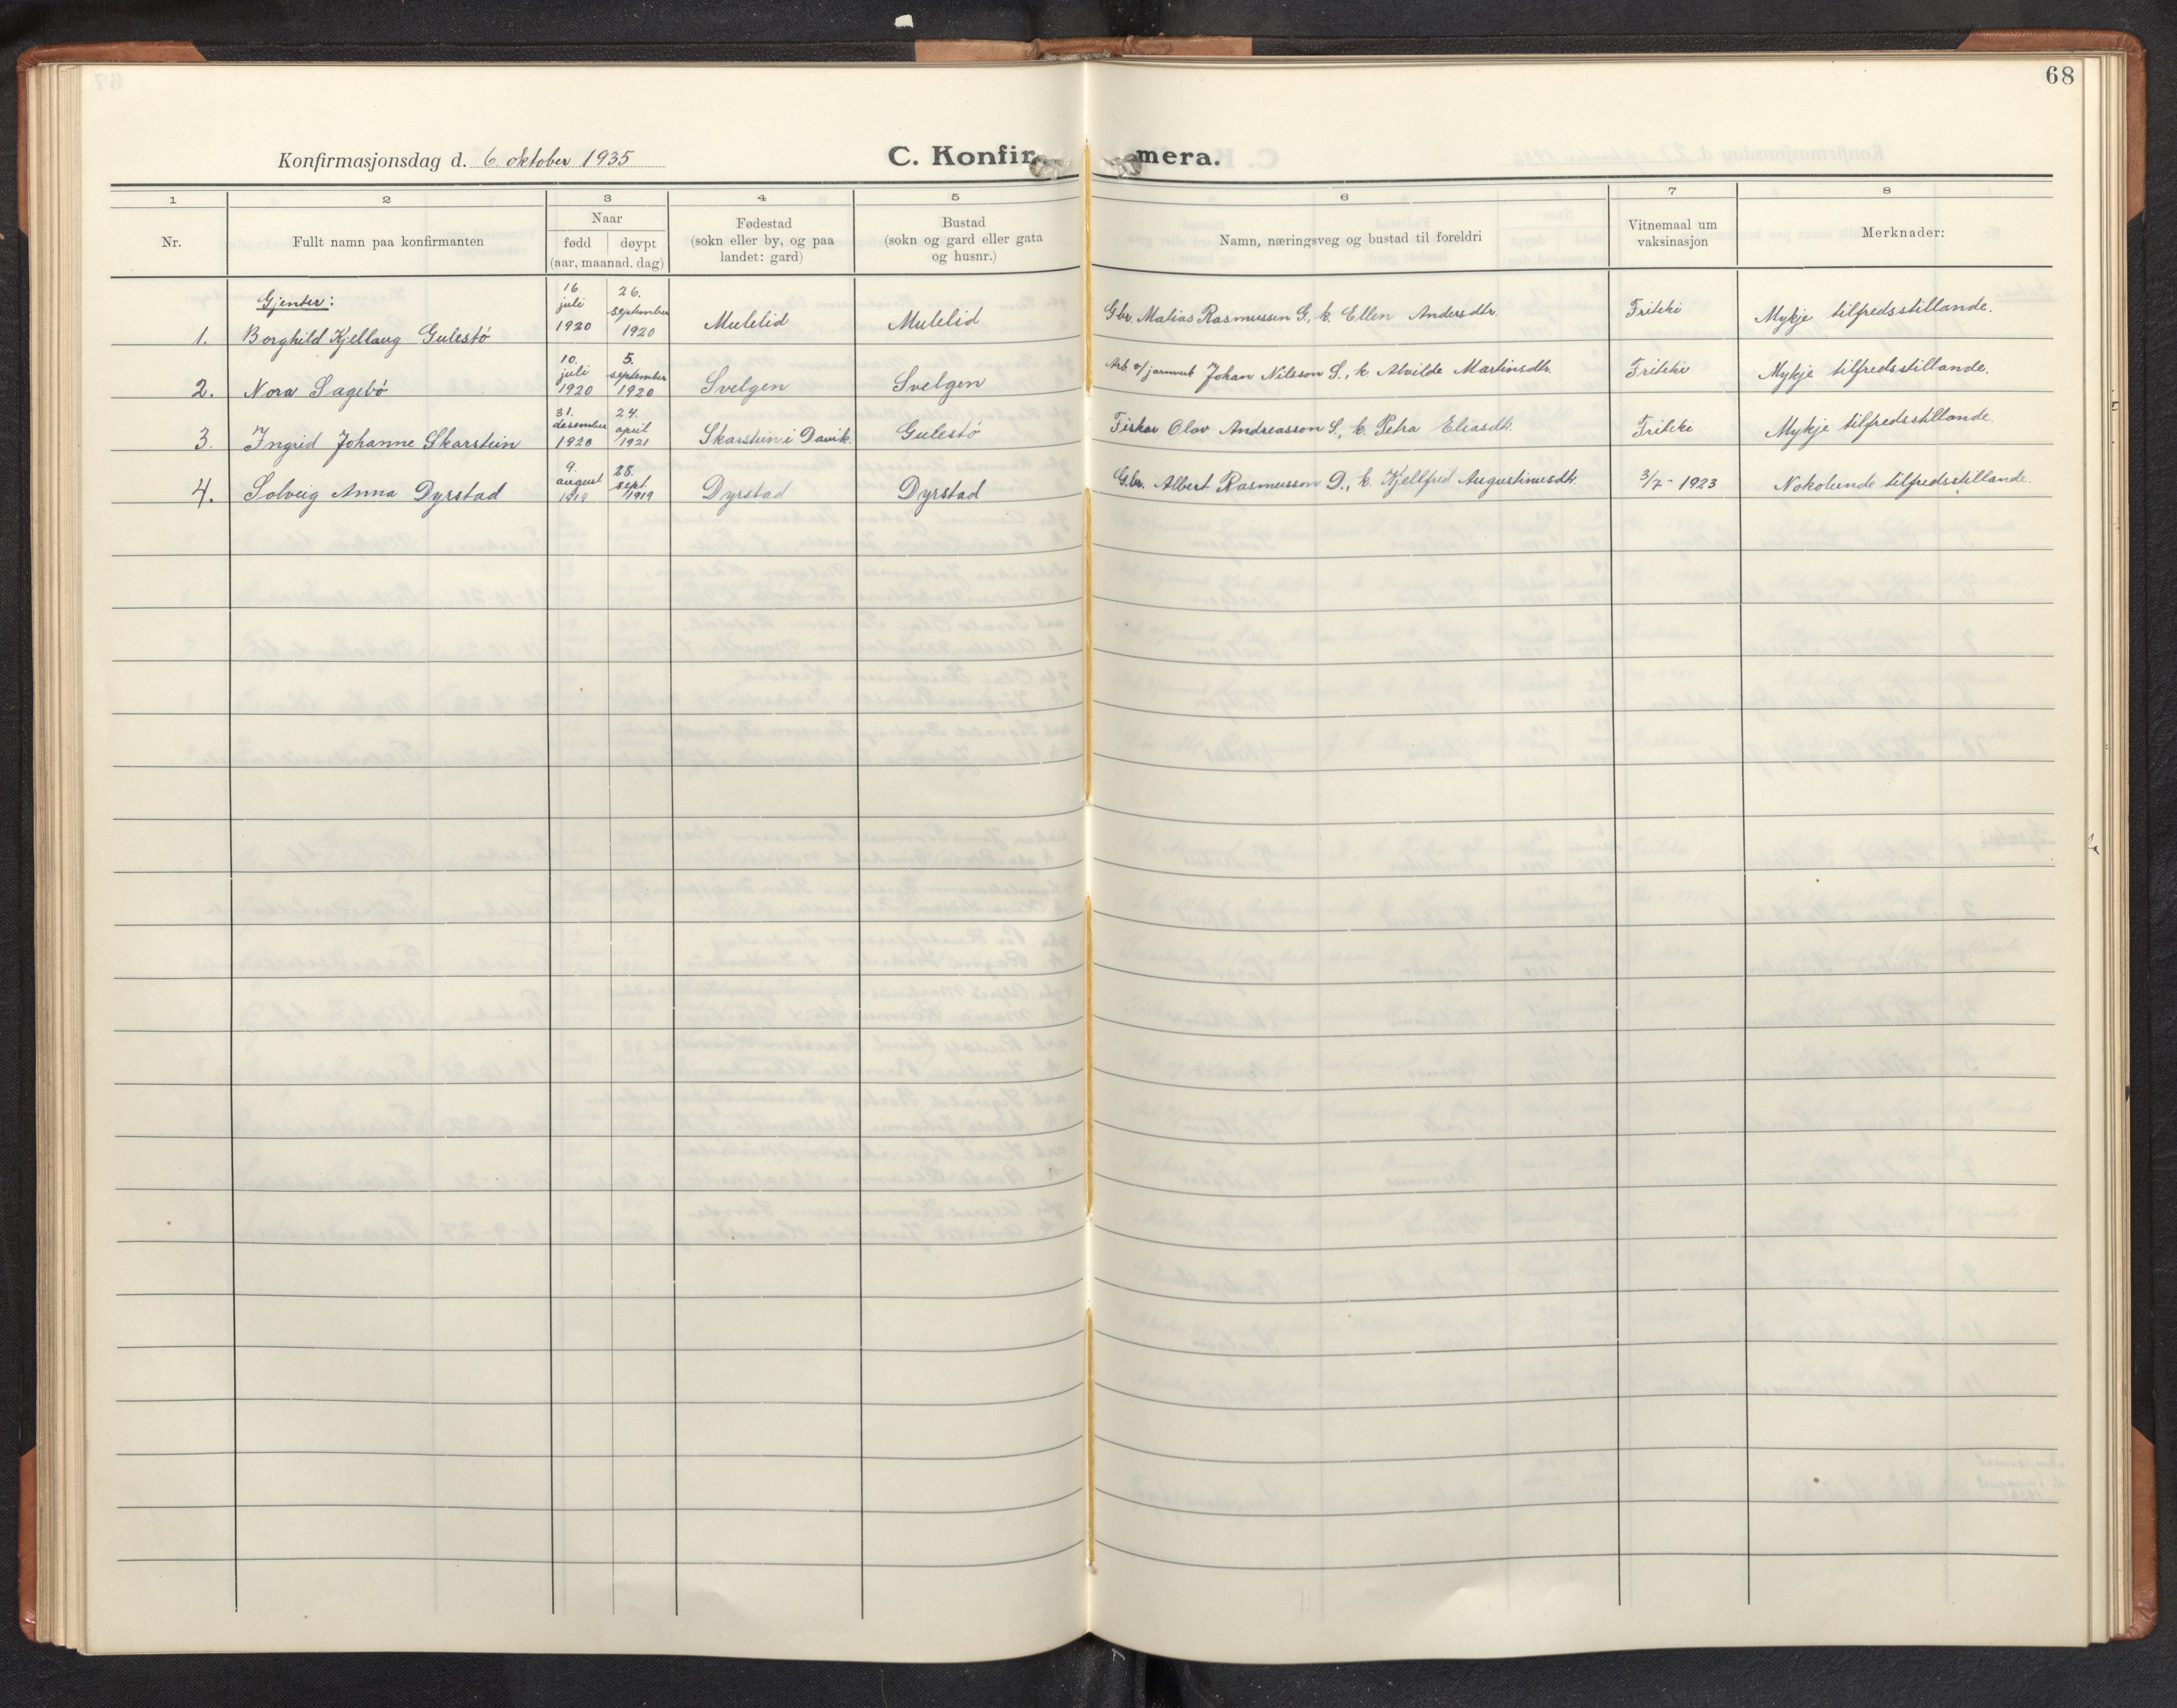 68
Konfirmasjonsdag d. 6. oktober 1935
C. Konfirmera.
1 2 3 4 5 6 7 8
Nr.
Fullt namn paa konfirmanten
Naar
fødd
døypt
(aar, maanad. dag)
Fødestad
(sokn eller by, og paa
landet: gard)
Bustad
(sokn og gard eller gata
og husnr.)
Namn, næringsveg og bustad til foreldri
Vitnemaal um
vaksinasjon
Merknader:
Gjenter:
1. Borghild Kjellaug Gulestö 16. juli 1920 26. september 1920 Mulelid Mulelid Gbr. Matias Rasmussen G., k. Ellen Andersdtr. Friteki Mykje tilfredsstillande.
2. Nora Sagebö 10. juli 1920 5. september 1920 Svelgen Svelgen Arb. v/ jarnverk Johan Nilsson S., k. Alvilde Martinsdtr. Friteki Mykje tilfredsstillande.
3. Ingrid Johanne Skarstein 31. desember 1920 24. april 1921 Skarstein i Davik. Gulestö Fiskar Olav Andreasson S., k. Petra Eliasdt. Friteki Mykje tilfredsstillande.
4. Solveig Anna Dyrstad 9. august 1919 28. sept. 1919 Dyrstad Dyrstad Gbr. Albert Rasmusson D., k. Kjellfrid Augustinusdt. 3/7 - 1923 Nokolunde tilfredsstillande.